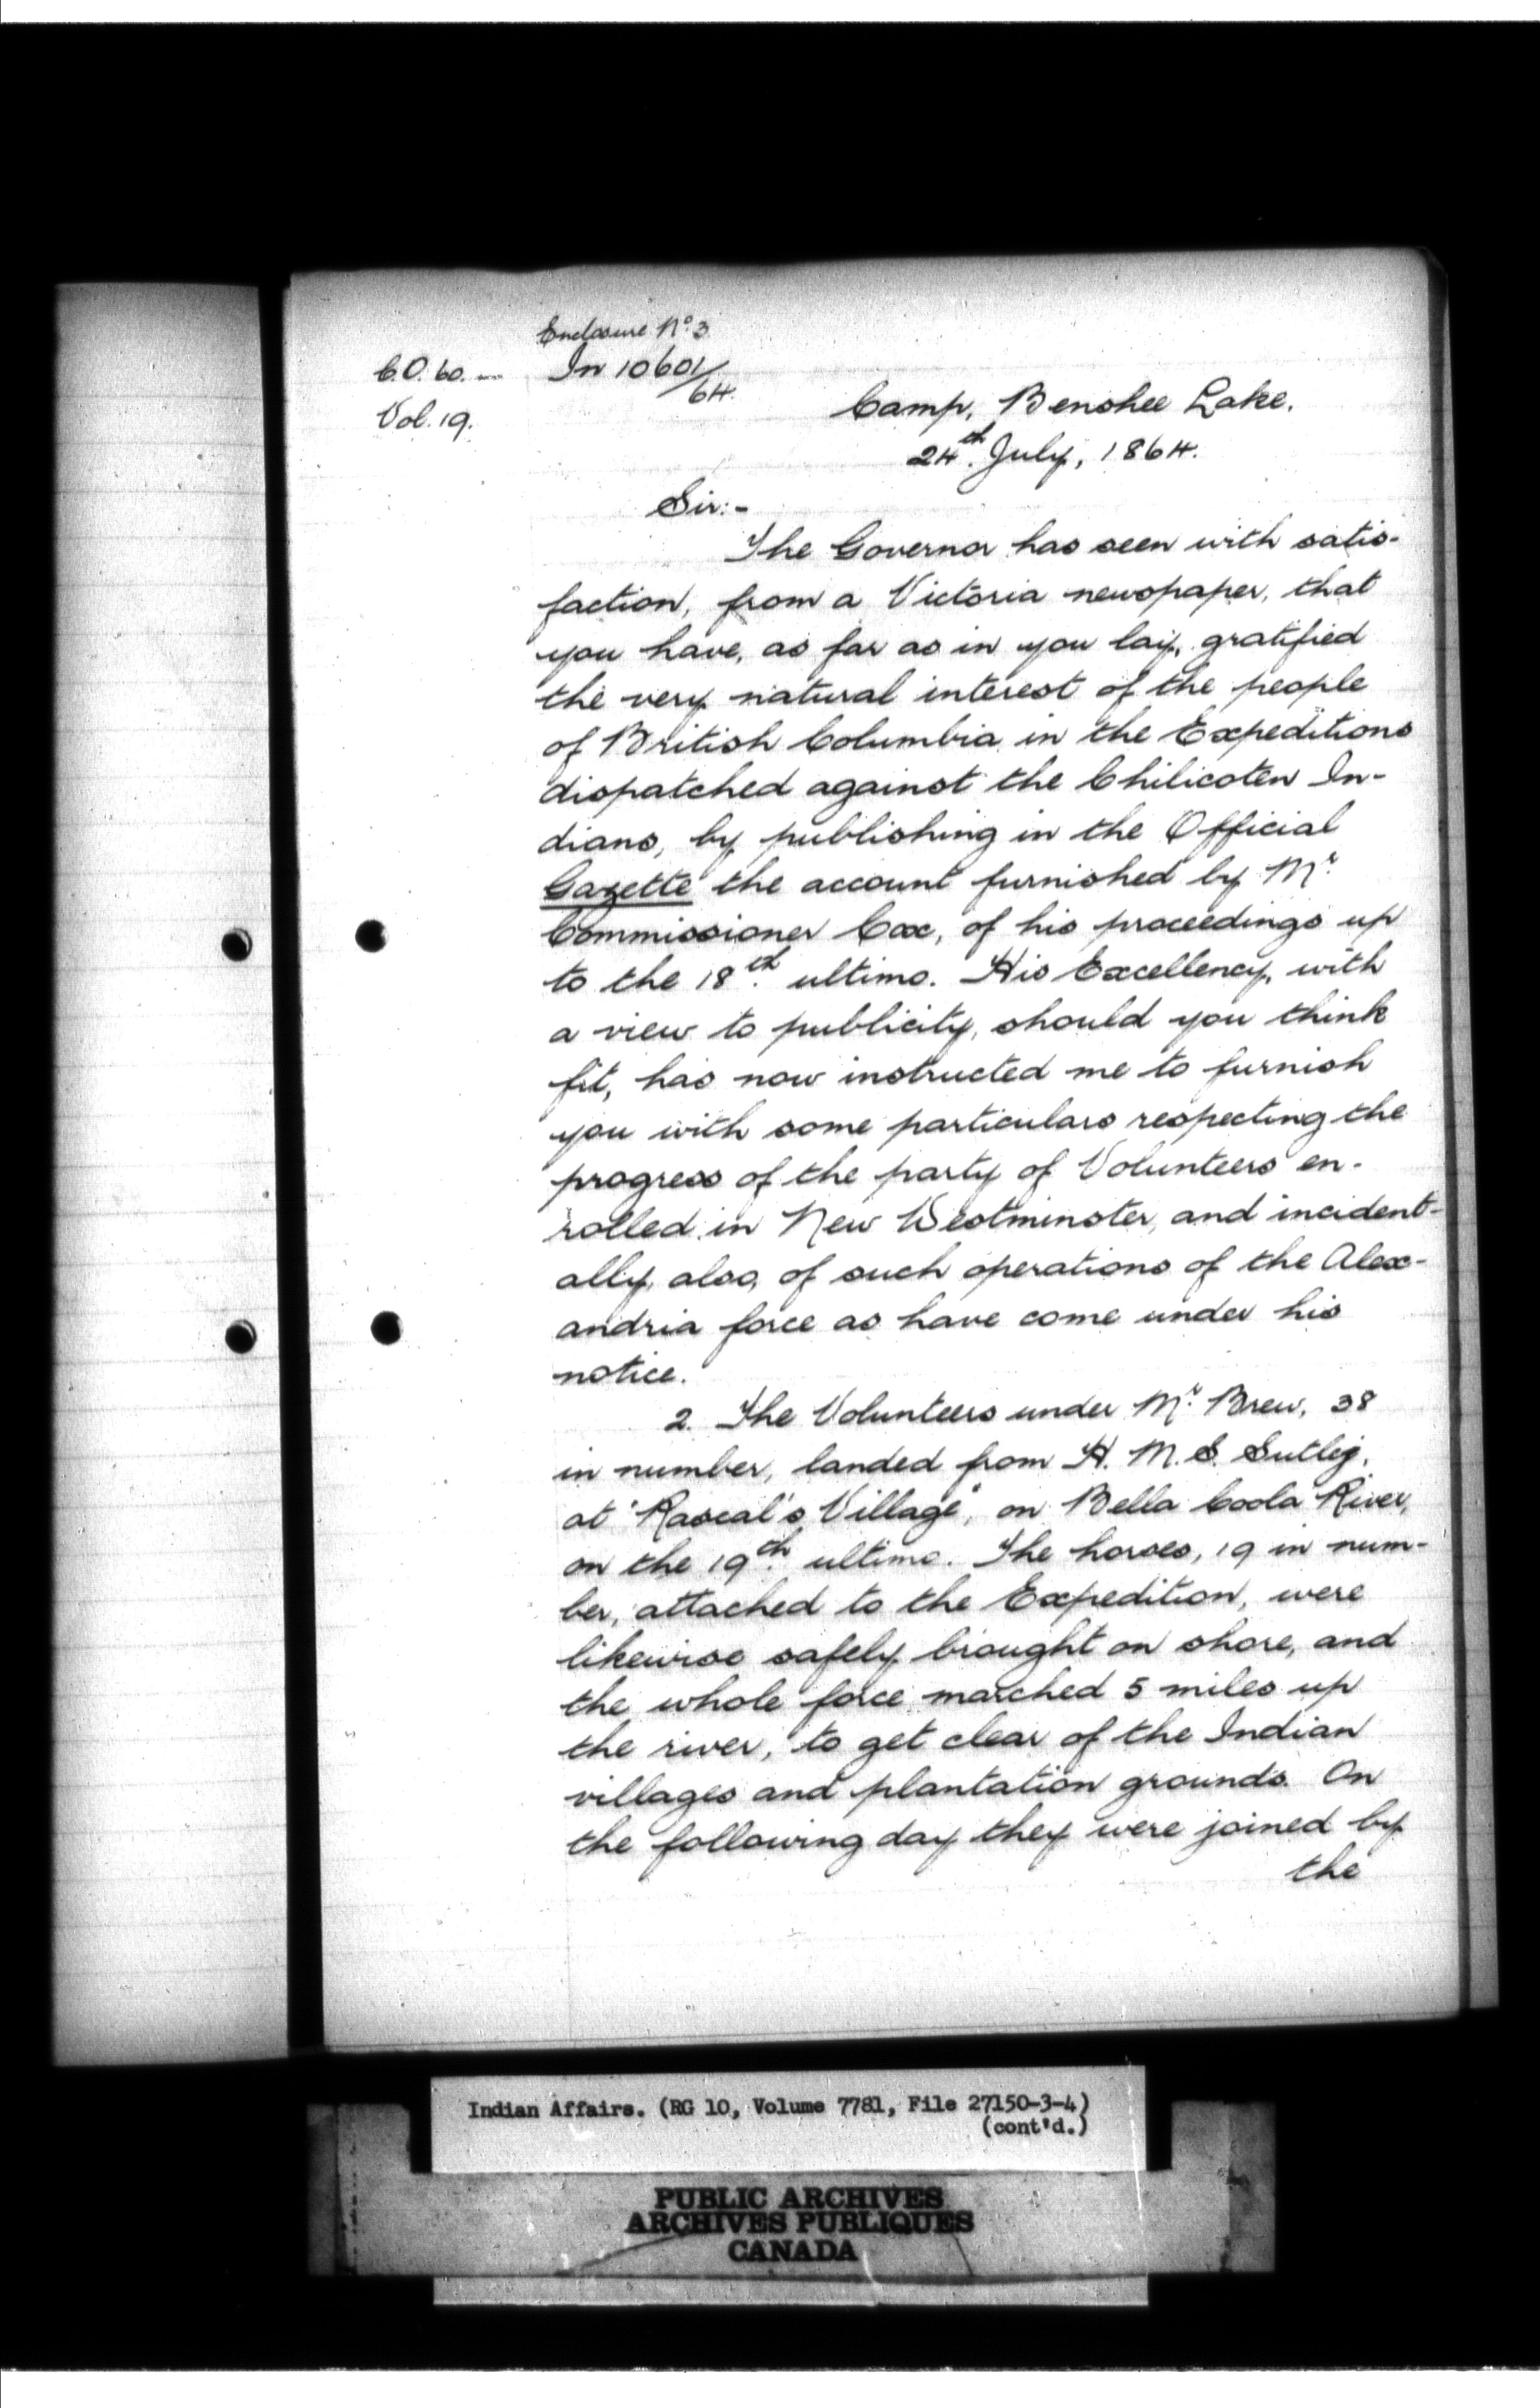 Enclosure No. 3
C.O. 60. — In 10601/64.
Vol. 19.
Camp, Benshee Lake.
24th. July, 1864.
Sir:-
The Governor has seen with satis-
faction, from a Victoria newspaper, that
you have, as far as in you lay, gratified
the very natural interest of the people
of British Columbia in the Expeditions
dispatched against the Chilicoten In-
dians, by publishing in the Official
Gazette the account furnished by Mr.
Commissioner Cox, of his proceedings up
to the 18th. ultimo. His Excellency, with
a view to publicity, should you think
fit, has now instructed me to furnish
you with some particulars respecting the
progress of the party of Volunteers en-
rolled in New Westminster, and incident-
ally, also, of such operations of the Alex-
andria force as have come under his
notice.
2. The Volunteers under Mr. Brew, 38
in number, landed from H. M. S. Sutlej,
at "Rascal's Village", on Bella Coola River,
on the 19th. ultimo. The horses, 19 in num-
ber, attached to the Expedition, were
likewise safely brought on shore, and
the whole force marched 5 miles up
the river, to get clear of the Indian
villages and plantation grounds. On
the following day they were joined by
the
Indian Affairs. (RG 10, Volume 7781, File 27150-3-4)
(cont'd.)
PUBLIC ARCHIVES
ARCHIVES PUBLIQUES
CANADA